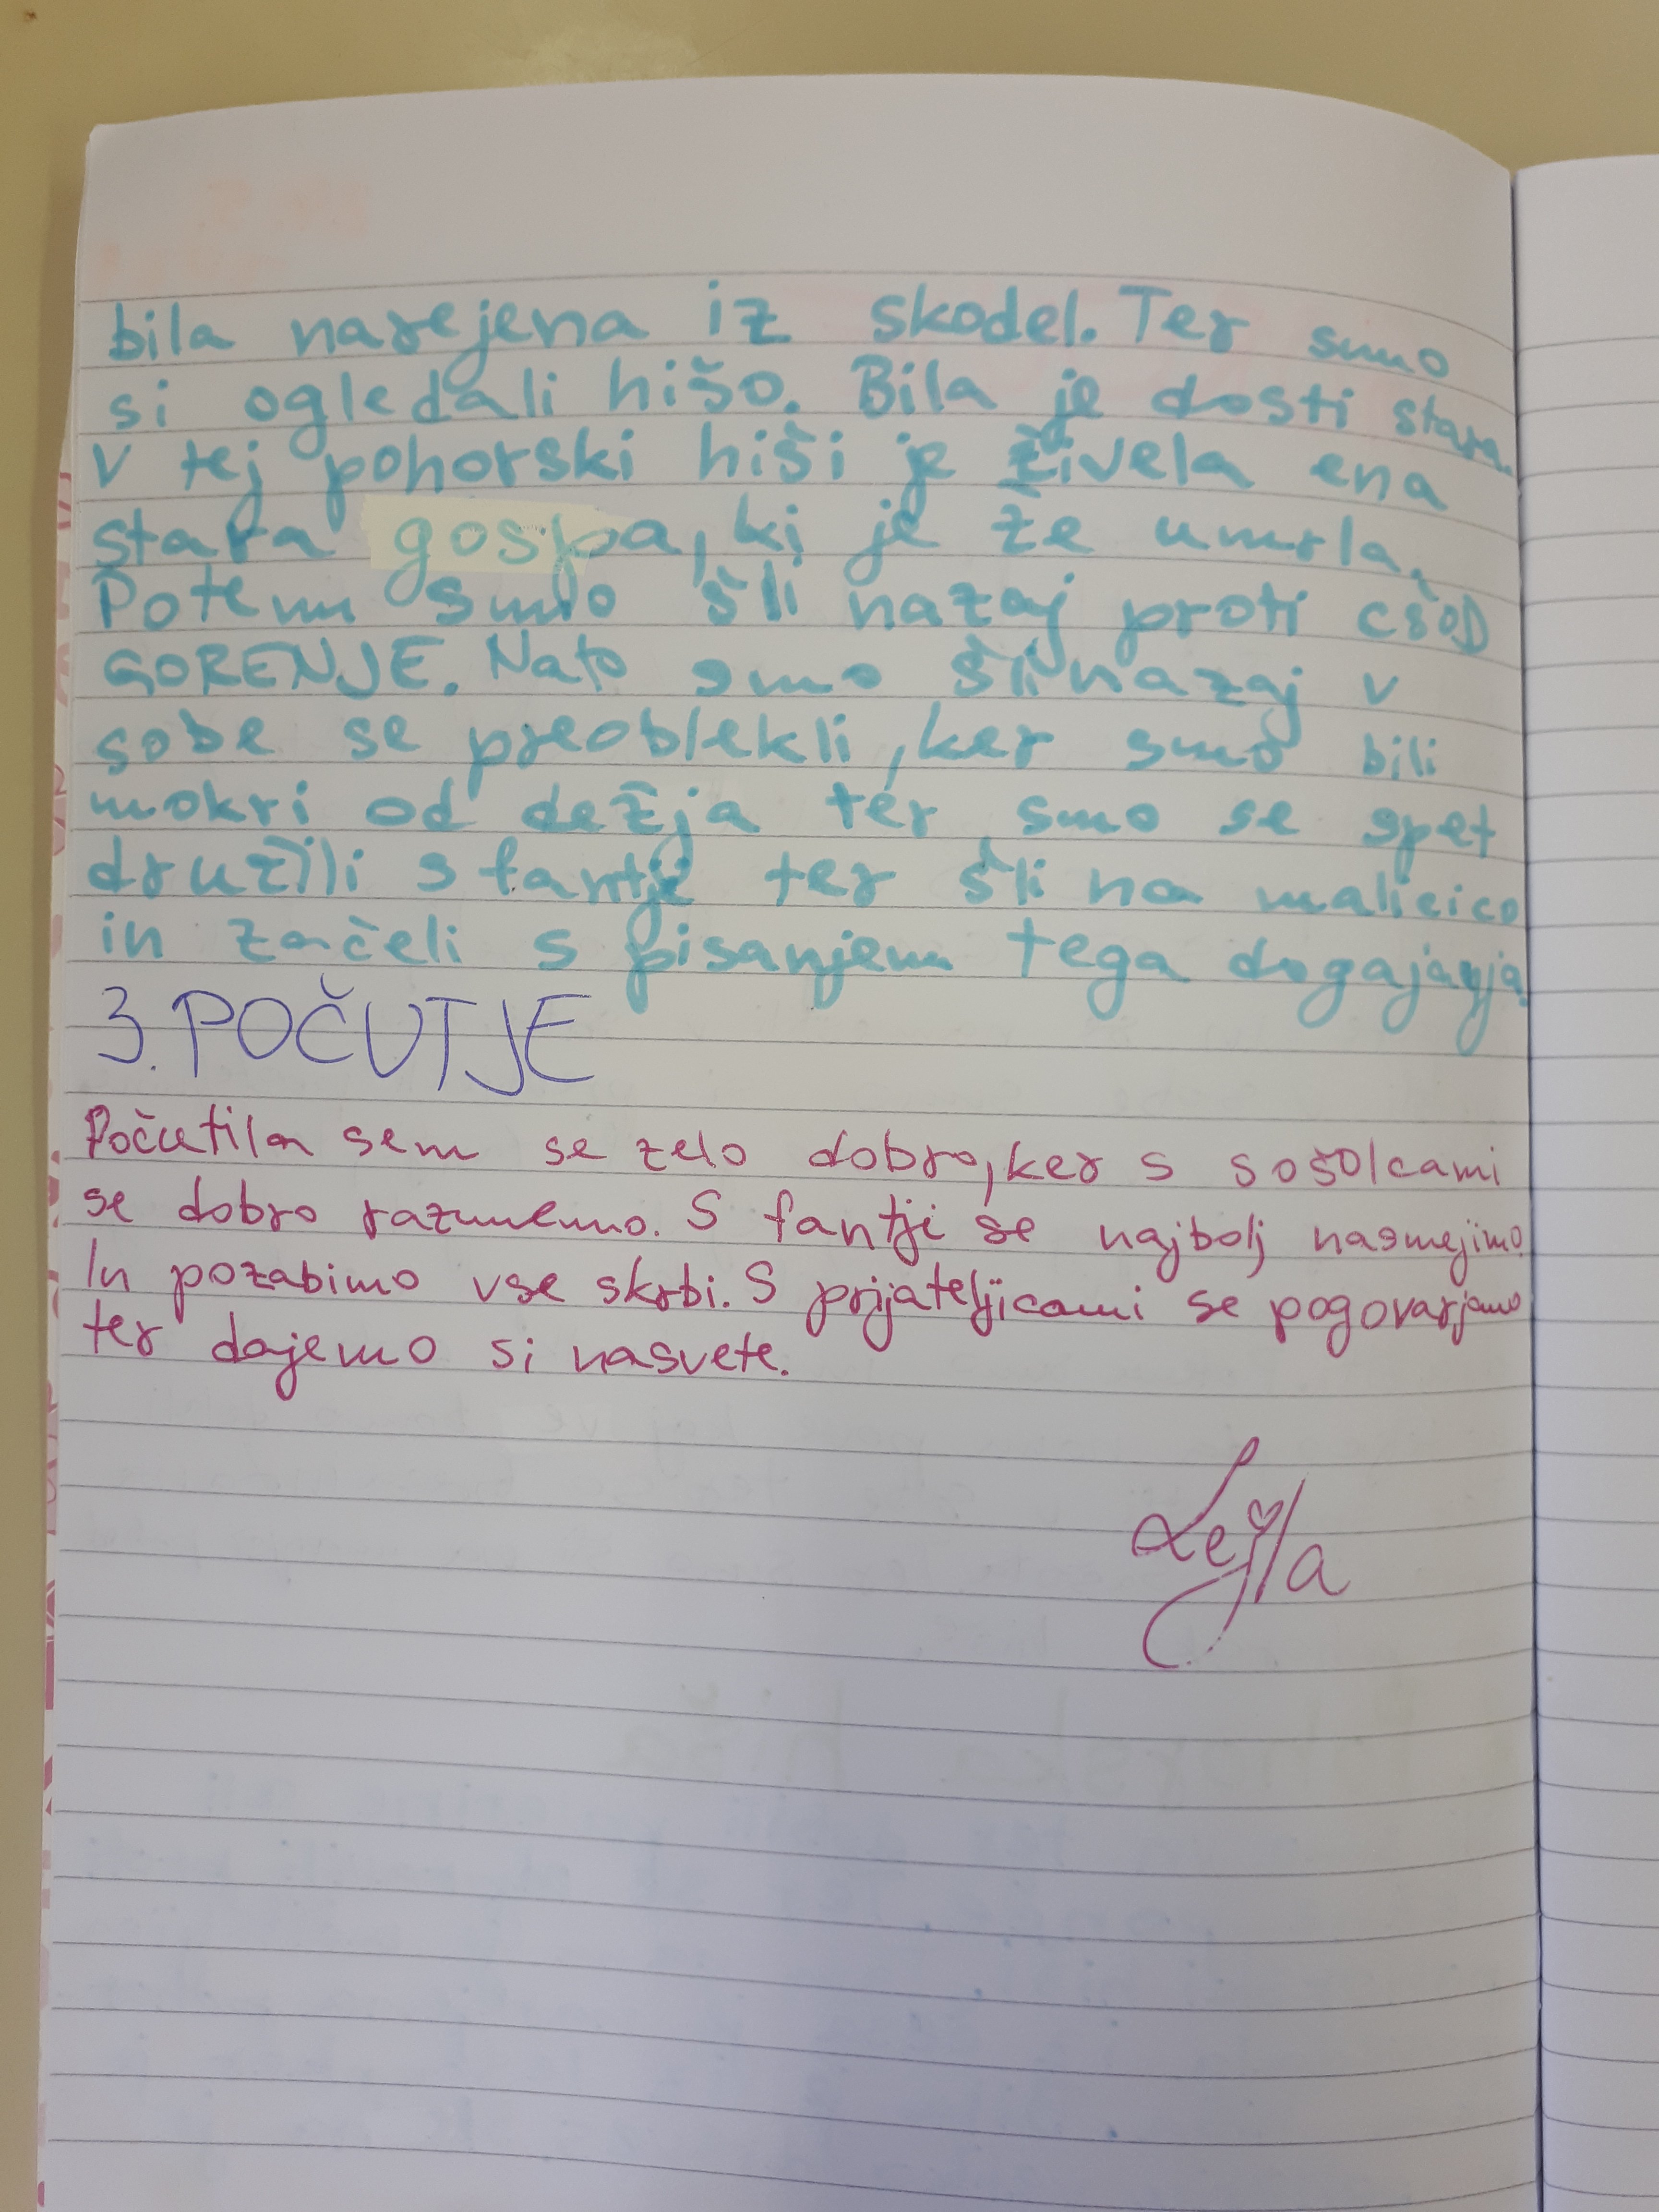 bila narejena iz skodel. Ter smo
si ogledali hišo. Bila je dosti stara.
V tej pohorski hiši je živela ena
stara gospa, ki je že umrla.
Potem smo šli nazaj proti CŠOD
GORENJE. Nato smo šli nazaj v
sobe se preoblekli, ker smo bili
mokri od dežja ter smo se spet
družili s fantje ter šli na malicico
in začeli s pisanjem tega dogajanja.
3. POČUTJE
Počutila sem se zelo dobro, ker s sošolcami
se dobro razumemo. S fantji se najbolj nasmejimo
In pozabimo vse skrbi. S prijateljicami se pogovarjamo
ter dajemo si nasvete.
Lejla